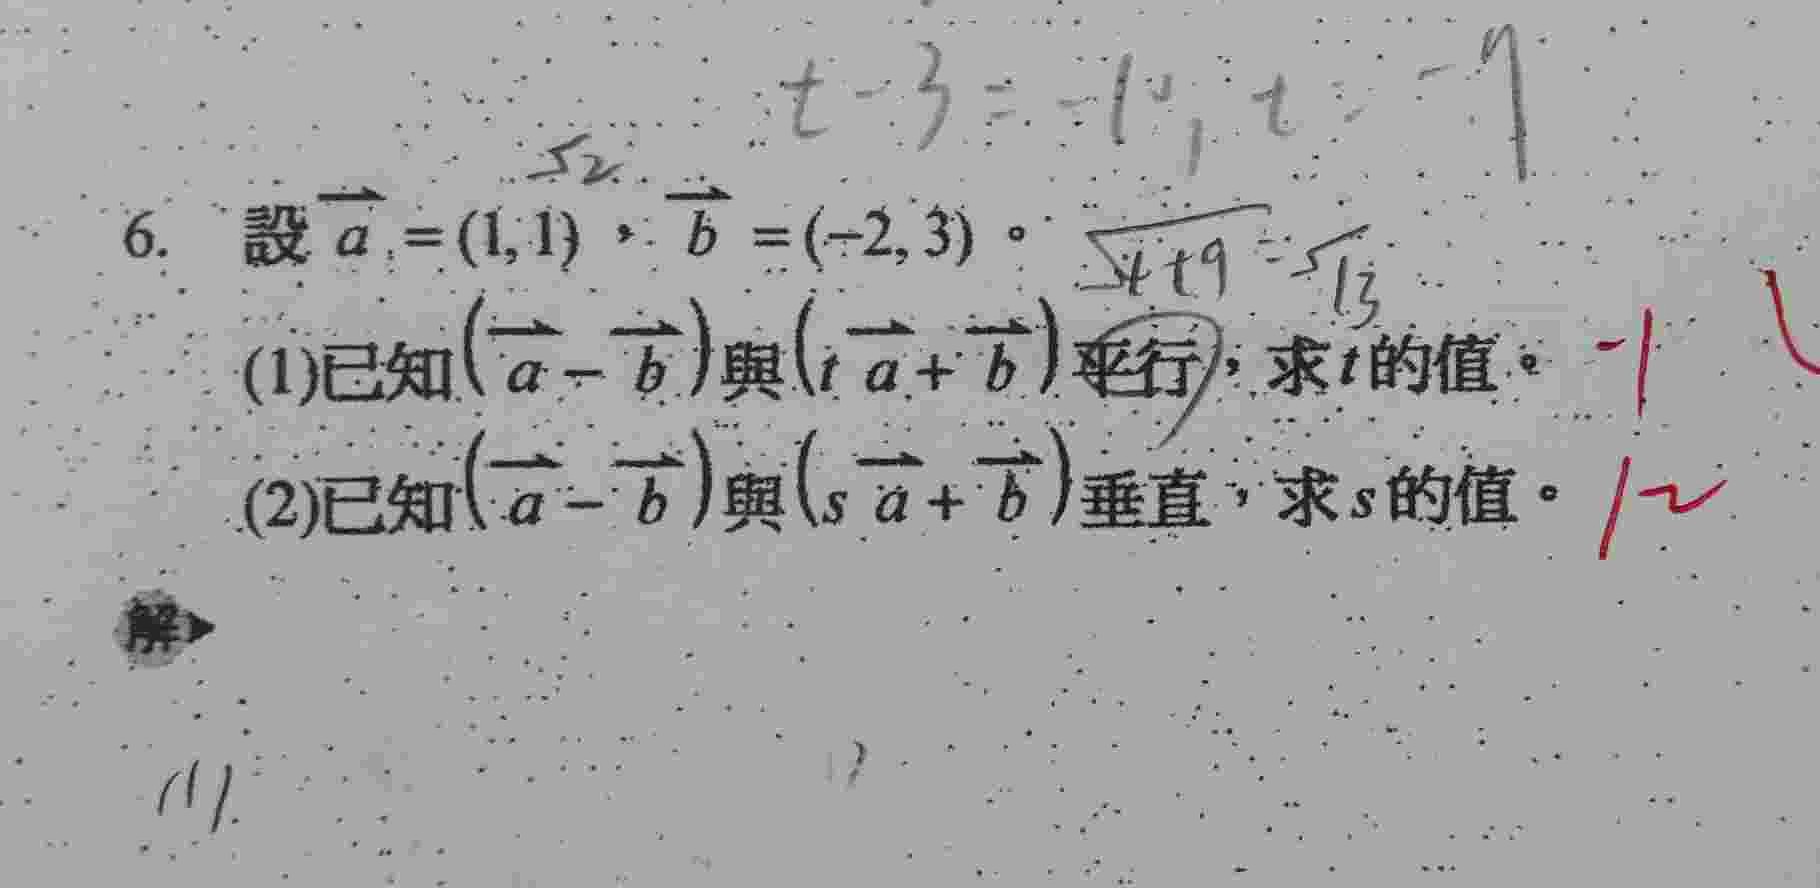 t - 3 = -10, t = -7
√2
6. 設 a = (1, 1)，b = (-2, 3)。 √4+9 = √13
(1)已知(a - b)與(t a + b)平行，求 t 的值。 -1
(2)已知(a - b)與(s a + b)垂直，求 s 的值。 12
解
(1)